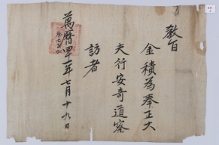 敎旨
金積爲奉正大
夫行安奇道察
訪者
萬曆四十一年七月十九日